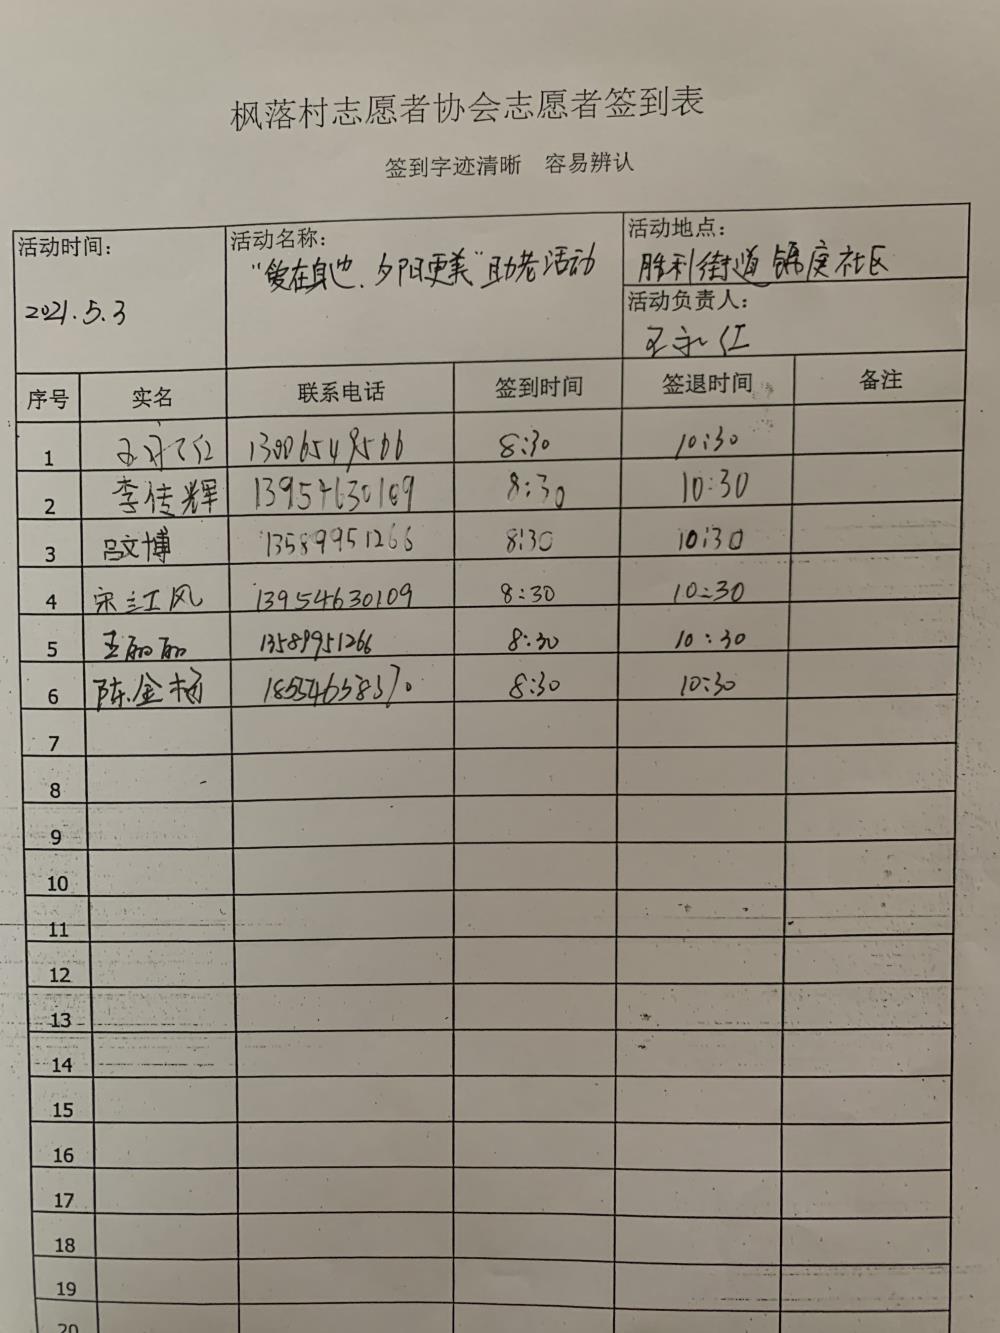 枫落村志愿者协会志愿者签到表
签到字迹清晰 容易辨认
活动时间：
2021.5.3
活动名称：
"爱在身边、夕阳更美"助老活动
活动地点：
胜利街道锦度社区
活动负责人：
王永红
序号 实名 联系电话 签到时间 签退时间 备注
1 红 13006549566 8:30 10:30
2 李传辉 13954630109 8:30 10:30
3 吕文博 13589951266 8:30 10:30
4 宋江风 13954630109 8:30 10:30
5 王丽丽 13589951266 8:30 10:30
6 陈金杨 8:30 10:30
7
8
9
10
11
12
13
14
15
16
17
18
19
20